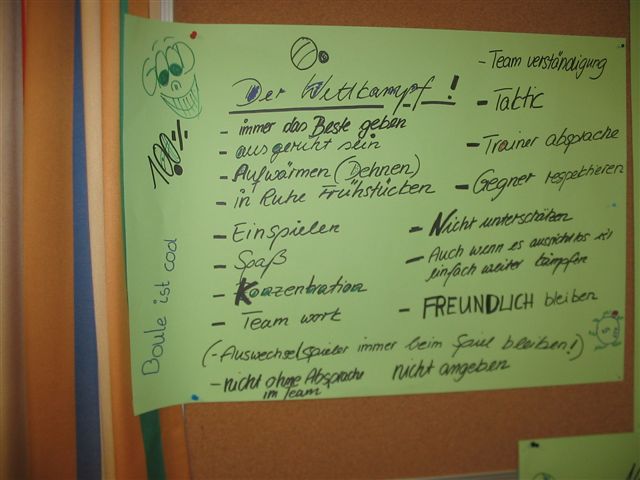 Der Wettkampf!
- immer das Beste geben
- ausgeruht sein
- Aufwärmen (Dehnen)
- in Ruhe Frühstücken
- Einspielen
- Spaß
- Konzentration
- Team work
- Team verständigung
- Taktic
- Trainer absprache
- Gegner respektieren
- Nicht unterschätzen
- Auch wenn es aussichtslos ist
einfach weiter kämpfen
- FREUNDLICH bleiben
(- Auswechselspieler immer beim Spiel bleiben!)
- nicht ohne Absprache
im Team
nicht angeben
100%
Boule ist cool